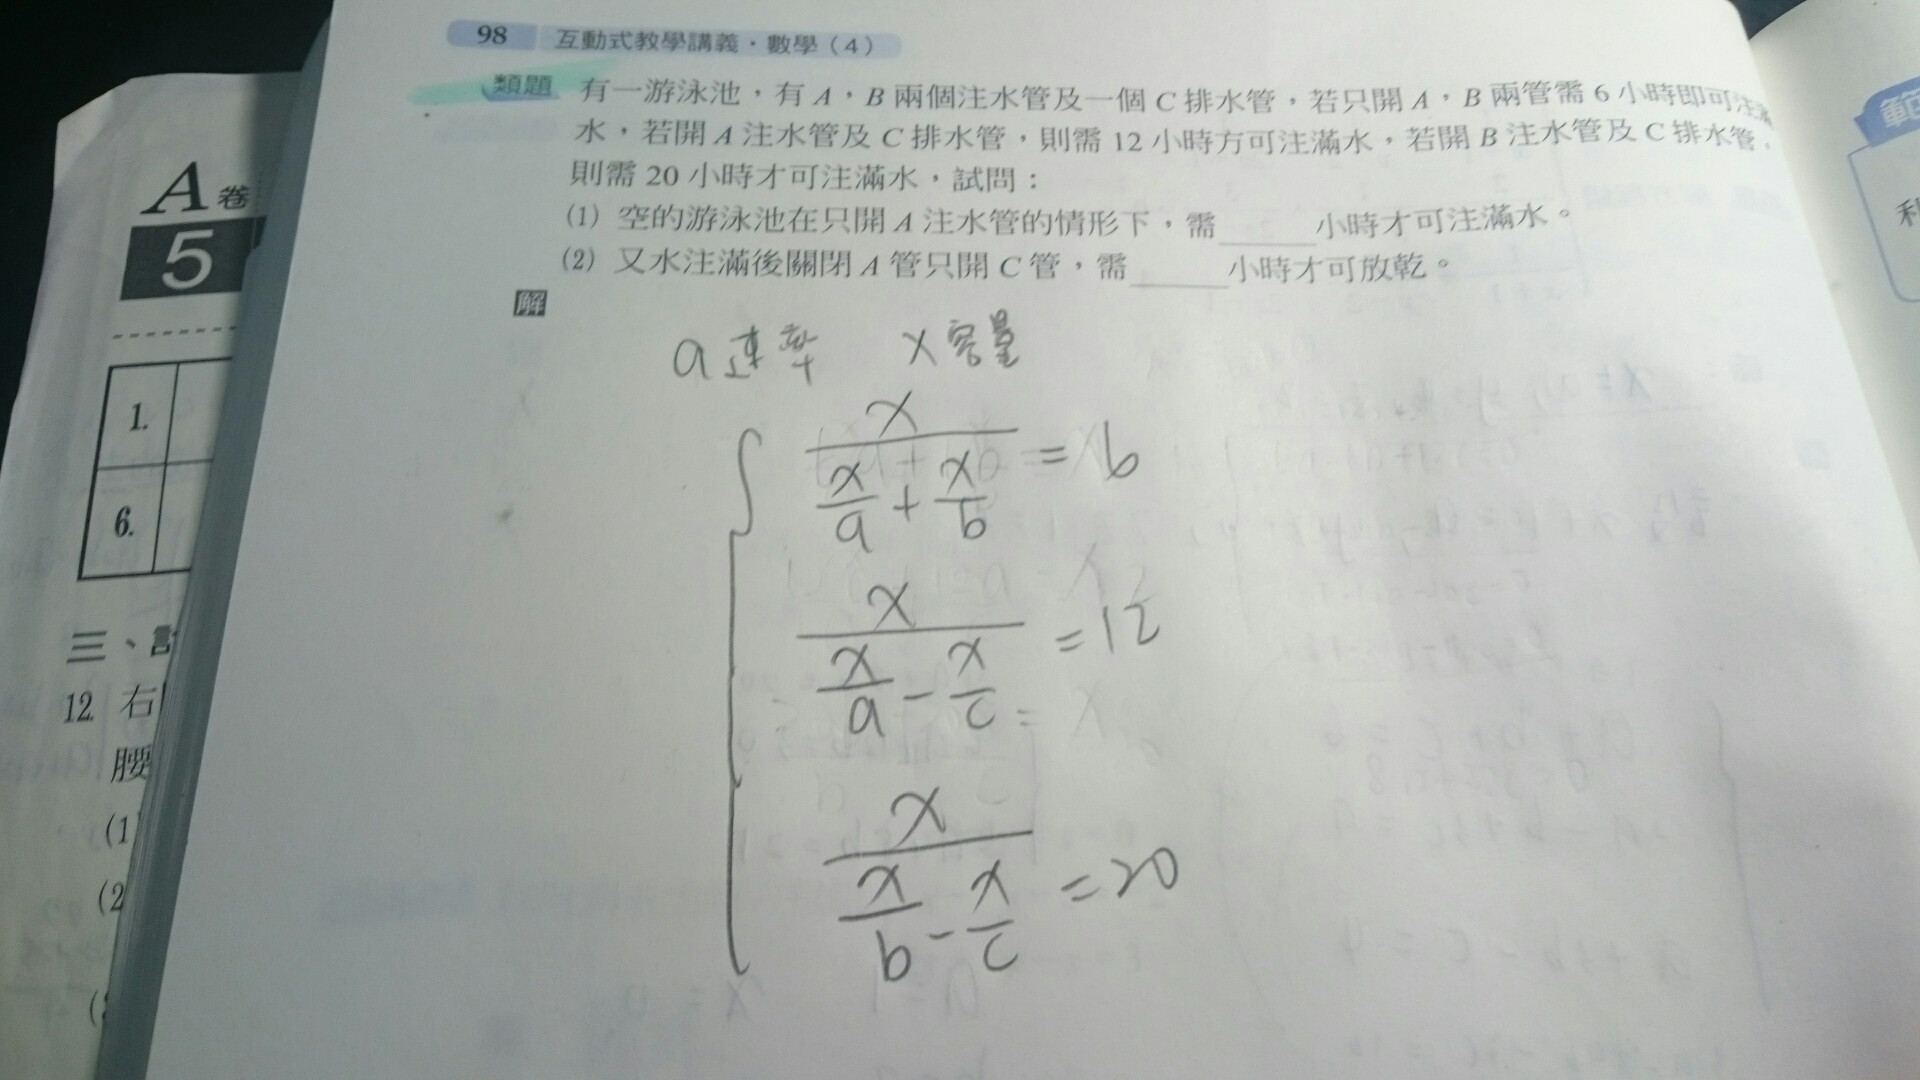 98 互動式教學講義・數學（4）
類題 有一游泳池，有 A，B 兩個注水管及一個 C 排水管，若只開 A，B 兩管需 6 小時即可注
水，若開 A 注水管及 C 排水管，則需 12 小時方可注滿水，若開 B 注水管及 C 排水管，
則需 20 小時才可注滿水，試問：
(1) 空的游泳池在只開 A 注水管的情形下，需____小時才可注滿水。
(2) 又水注滿後關閉 A 管只開 C 管，需____小時才可放乾。
解
a速率 x容量
x
x x = 6
a + b
x
x x = 12
a - c
x
x x = 20
b - c
A卷
5
1.
6.
三、
12. 右
腰
(1
(2